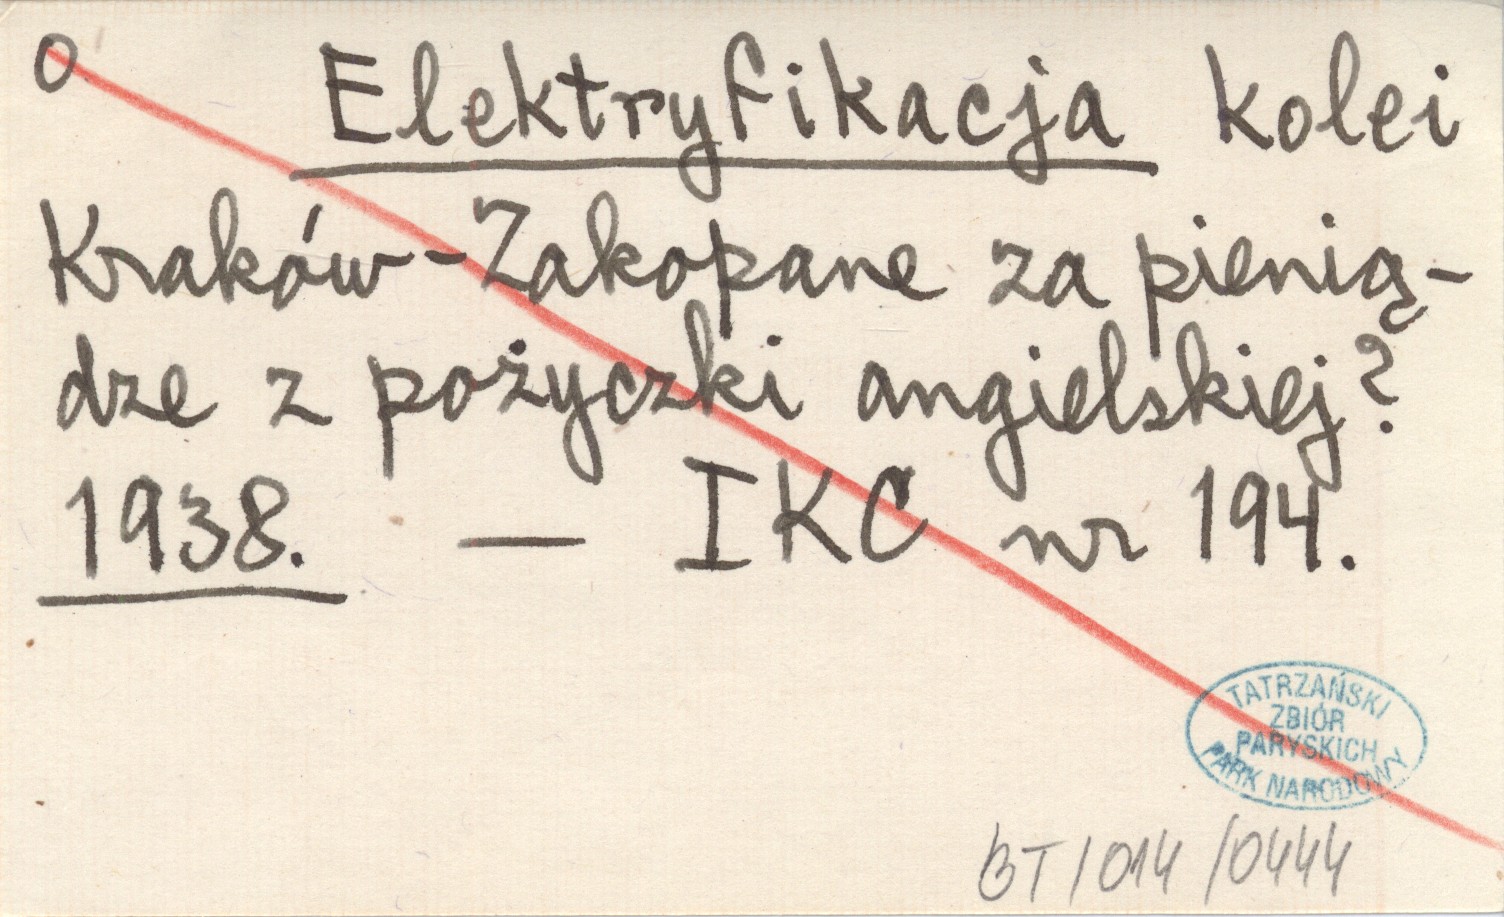 O
Elektryfikacja kolei
Kraków-Zakopane za pienią-
dze z pożyczki angielskiej?
1938. — IKC nr 194.
TATRZAŃSKI
ZBIÓR
PARYSKICH
PARK NARODOWY
BT/014/0444